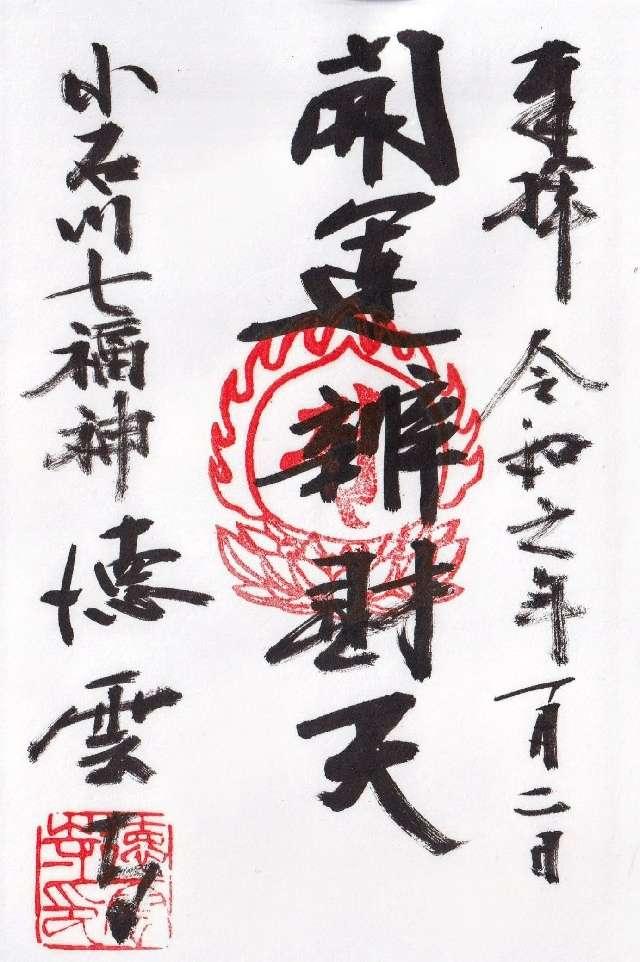 奉拝 令和 年一月二日
開運辨財天
小石川七福神 徳雲寺